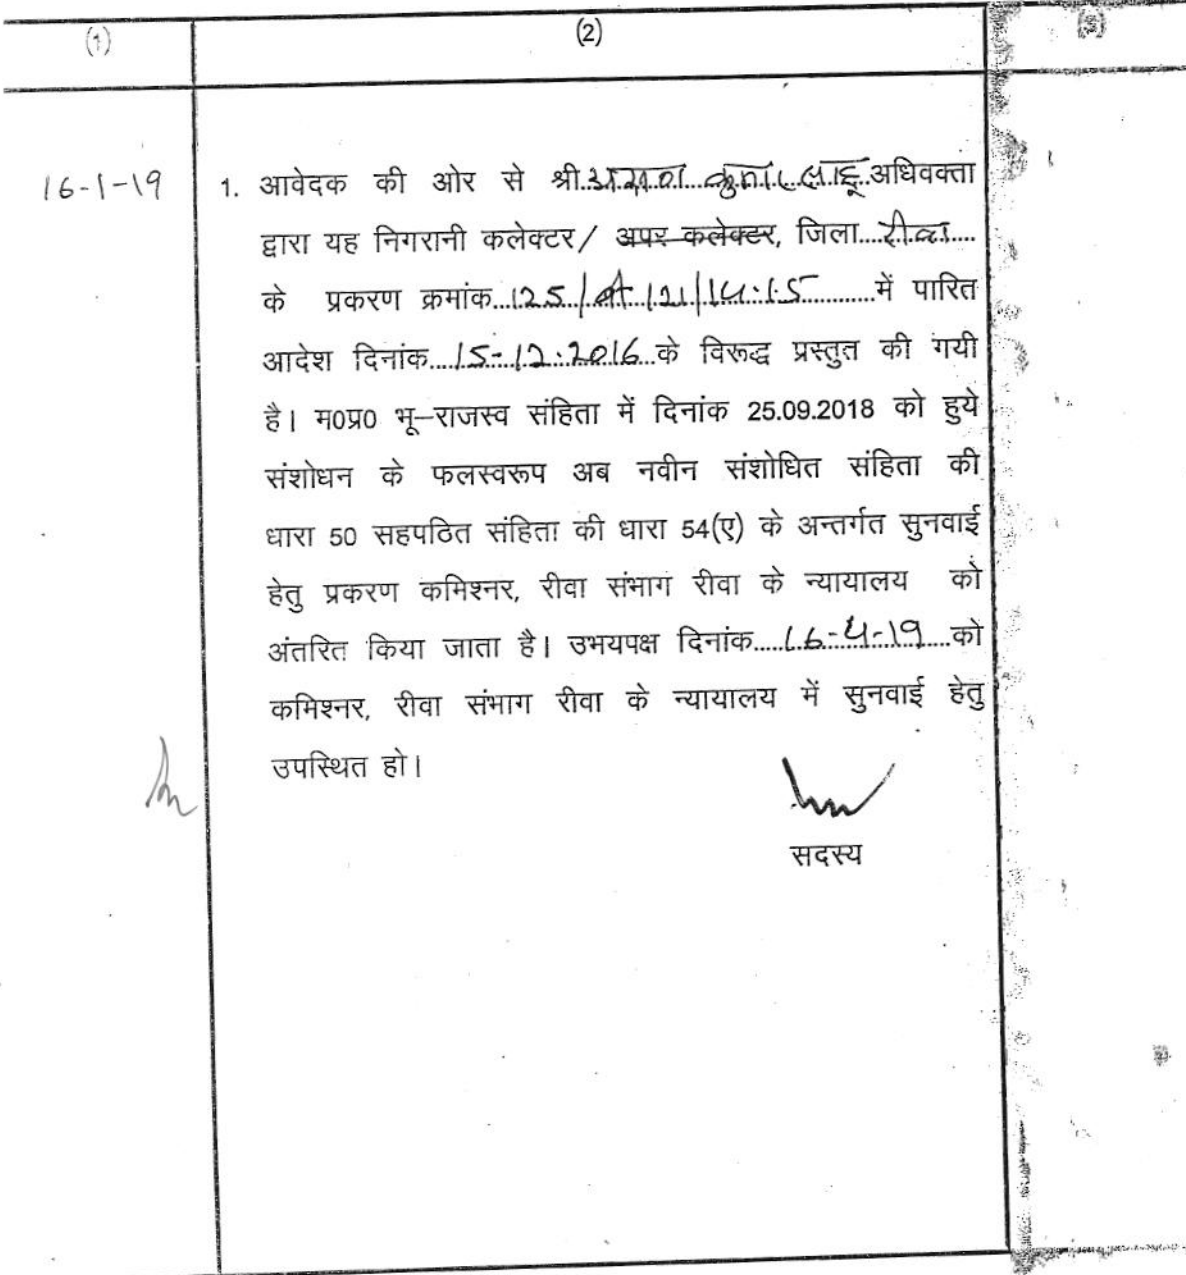 (1)
(2)
(3)
16-1-19
1. आवेदक की ओर से श्री कुमार साहू अधिवक्ता
द्वारा यह निगरानी कलेक्टर/ अपर कलेक्टर, जिला....रीवा....
के प्रकरण क्रमांक...125/अ/121/14-15...........में पारित
आदेश दिनांक....15-12-2016...के विरूद्ध प्रस्तुत की गयी
है। म0प्र0 भू–राजस्व संहिता में दिनांक 25.09.2018 को हुये
संशोधन के फलस्वरूप अब नवीन संशोधित संहिता की
धारा 50 सहपठित संहिता की धारा 54(ए) के अन्तर्गत सुनवाई
हेतु प्रकरण कमिश्नर, रीवा संभाग रीवा के न्यायालय को
अंतरित किया जाता है। उभयपक्ष दिनांक.....16-4-19....को
कमिश्नर, रीवा संभाग रीवा के न्यायालय में सुनवाई हेतु
उपस्थित हो।
सदस्य